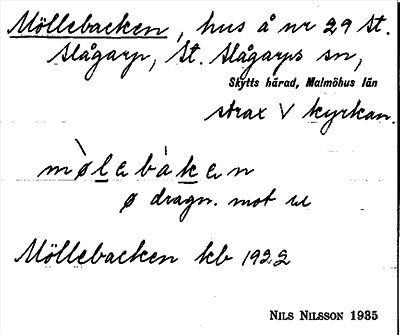 Möllebacken, hus å nr 29 St.
Slågarp, St. Slågarps sn,
Skytts härad, Malmöhus län
strax V kyrkan.
mø̀lebàken
ø dragn. mot u
Möllebacken kb 1922
NILS NILSSON 1935